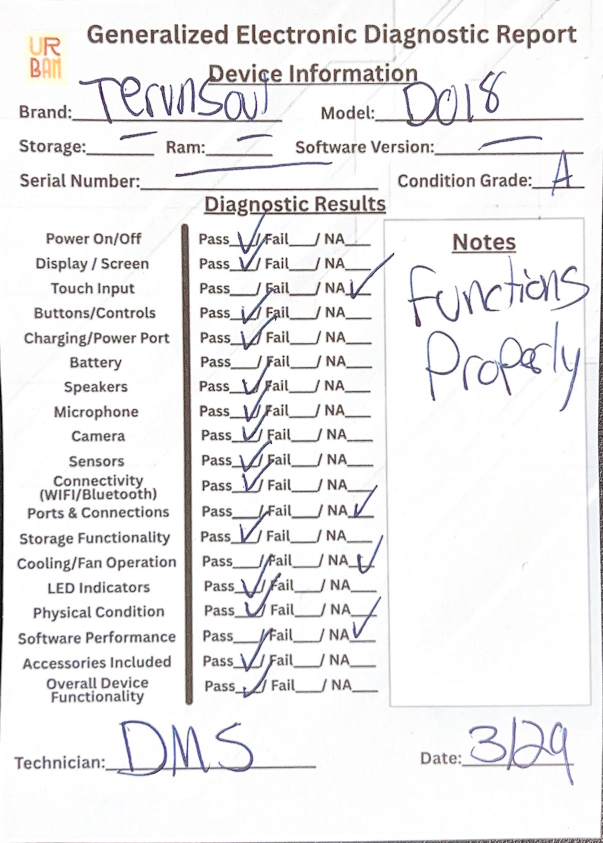 UR
BAN
Generalized Electronic Diagnostic Report
Device Information
Brand: TerunSoul Model: D018
Storage: — Ram: — Software Version: —
Serial Number: — Condition Grade: A
Diagnostic Results
Power On/Off Pass ✓/ Fail___/ NA___
Display / Screen Pass ✓/ Fail___/ NA___
Touch Input Pass___/ Fail___/ NA ✓
Buttons/Controls Pass ✓/ Fail___/ NA___
Charging/Power Port Pass ✓/ Fail___/ NA___
Battery Pass___/ Fail___/ NA___
Speakers Pass ✓/ Fail___/ NA___
Microphone Pass ✓/ Fail___/ NA___
Camera Pass ✓/ Fail___/ NA___
Sensors Pass ✓/ Fail___/ NA___
Connectivity
(WIFI/Bluetooth) Pass ✓/ Fail___/ NA___
Ports & Connections Pass___/ Fail___/ NA ✓
Storage Functionality Pass ✓/ Fail___/ NA___
Cooling/Fan Operation Pass___/ Fail___/ NA ✓
LED Indicators Pass ✓/ Fail___/ NA___
Physical Condition Pass ✓/ Fail___/ NA___
Software Performance Pass___/ Fail___/ NA ✓
Accessories Included Pass ✓/ Fail___/ NA___
Overall Device
Functionality Pass ✓/ Fail___/ NA___
Notes
Functions
Properly
Technician: DMS Date: 3/29